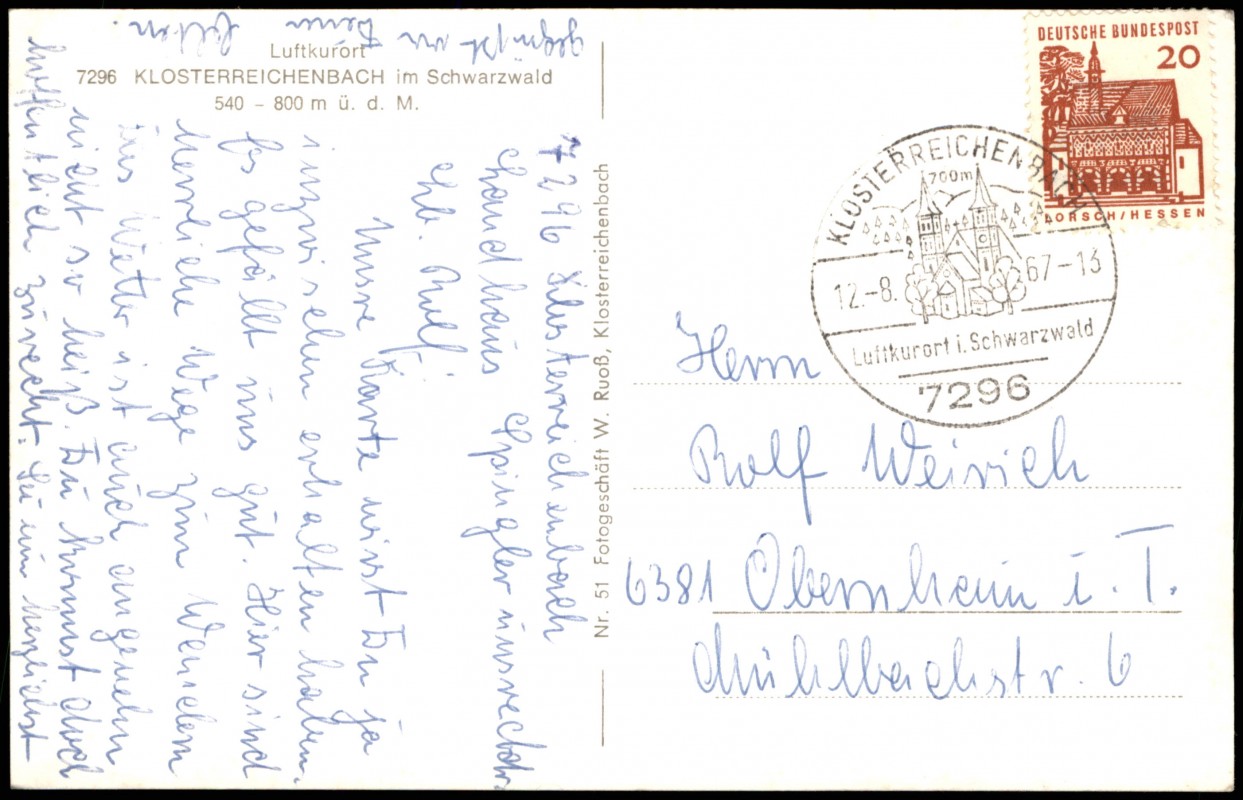 Luftkurort
7296 KLOSTERREICHENBACH im Schwarzwald
540 – 800 m ü. d. M.
7296 Klosterreichenbach
Landhaus Springler
Lb. Rolf,
Unsre Karte wirst Du ja
inzwischen erhalten haben.
Es gefällt uns gut. Hier sind
herrliche Wege zum Wandern
Das Wetter ist auch angenehm
nicht so heiß. Du kommst doch
hoffentlich zurecht. Sei nun herzlichst
gegrüßt von Deinen lieben.
Nr. 51 Fotogeschäft W. Ruoß, Klosterreichenbach
DEUTSCHE BUNDESPOST
20
LORSCH/HESSEN
KLOSTERREICHENBACH
700m
12.-8. 67-13
Luftkurort i. Schwarzwald
7296
Herrn
Rolf Weirich
6381 Obernhain i. T.
Mühlbachstr. 6